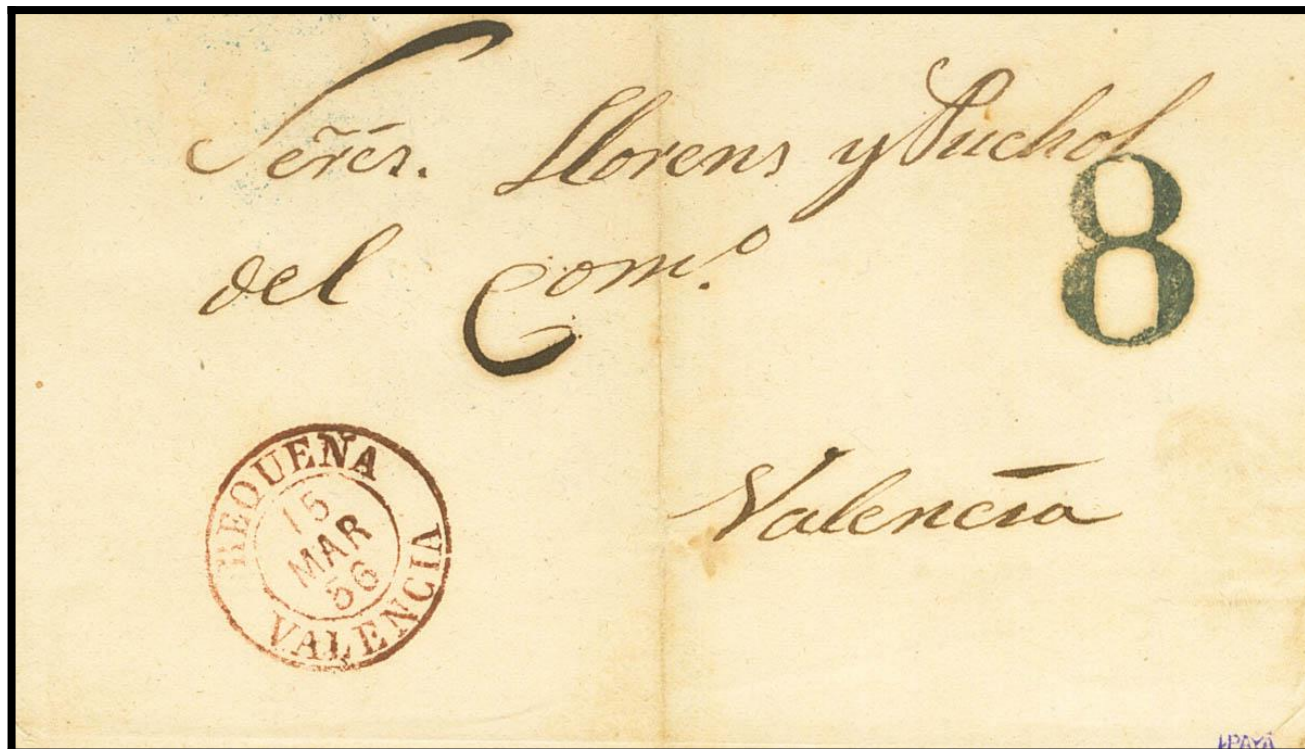 Señres. Llorens y Puchol
del Com.º
8
Valencia
REQUENA
15
MAR
56
VALENCIA